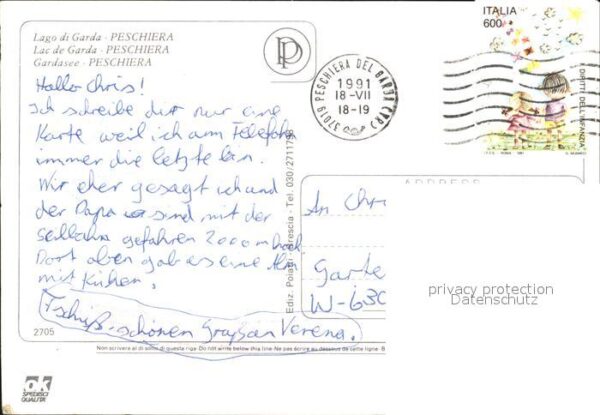 Lago di Garda - PESCHIERA
Lac de Garda - PESCHIERA
Gardasee - PESCHIERA
Hallo Chris!
Ich schreibe dir nur eine
Karte weil ich am Telefohn
immer die letzte bin.
Wir eher gesagt ich und
der Papa sind mit der
seilbahn gefahren 2000 m hoch
Dort oben gab es eine Alm
mit Kühen.
Tschüß. schönen Gruß an Verena.
2705
ok
SPEDISCI
QUALITÀ
Non scrivere al di sotto di questa riga - Do not write below this line - Ne pas écrire au dessous de cette ligne - B
Ediz. Poiatti - Brescia - Tel. 030/2711793
P
37019 PESCHIERA DEL GARDA (VR)
1991
18-VII
18-19
ITALIA
600
DIRITTI DELL'INFANZIA
I.P.Z.S. - ROMA - 1991
ADDRESS
An Chr
Garte
W-630
privacy protection
Datenschutz